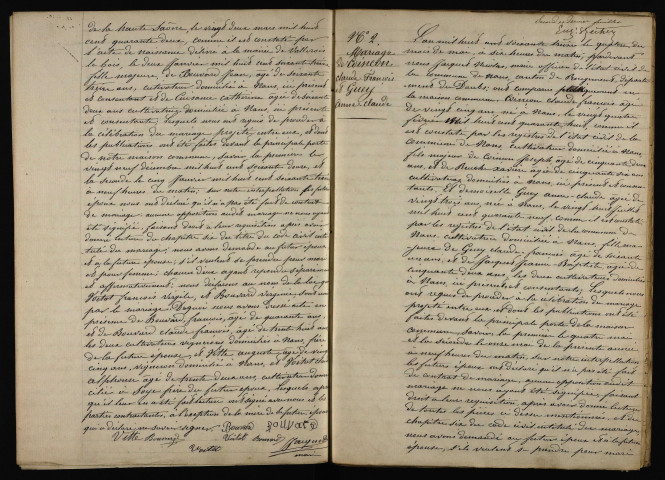 de la haute Saône, le vingt deux mars mil huit
cent quarante deux, comme il est constaté par
l'acte de naissance delivré à la mairie de Vallerois
le bois, le deux Janvier mil huit cent soixante treize
fille majeure de Bouvard Jean, âgé de soixante
treize ans, cultivateur domicilié à Nans, ici présent
et consentant et de Cuisance Catherine âgée de soixante
deux ans cultivatrice domiciliée à Nans, ici présente
et consentante; lesquels nous ont requis de procéder à
la célébration du mariage projeté entre eux, et dont
les publications ont été faites devant la principale porte
de notre maison commune, savoir la première le
vingt neuf décembre mil huit cent soixante douze, et
la seconde le cinq Janvier mil huit cent soixante treize
à neuf heures du matin; sur notre interpellation les futurs
époux nous ont déclaré qu'il n'a pas été fait de contrat
de mariage. aucune opposition audit mariage ne nous ayant
été signifiée, faisant droit à leur réquisition après avoir
donné lecture du chapitre six du titre du code civil inti
tulé du mariage; nous avons demandé au futur époux
et à la future épouse; s'ils veulent se prendre pour mari
et pour femme; chacun d'eux ayant répondu séparément
et affirmativement; nous déclarons au nom de la loi que
Voitot François Virgile, et Bouvard Virginie sont unis
par le mariage. De quoi nous avons dressé acte en
présence de Bouvard, François, âgé de quarante ans,
et de Bouvard Claude François, âgé de trente huit ans
les deux cultivateurs vignerons domiciliés à Nans, frère
de la future épouse, et Vitte auguste, âgé de vingt
cinq ans, vigneron domicilié à Nans, et Voitot
alphonse âgé de trente deux ans, cultivateur domi
cilié à frère du futur époux, lesquels après
qu'il leur en a été fait lecture ont signé avec nous et les
parties contractantes, à l'exception de la mère de la future épouse
qui a déclaré ne savoir signer.
Bouvard
Vitte
Voitot
Jacquet
N° 2.
Mariage
de
Claude François
et Guey
anne claude
L'an mil huit cent soixante treize le quatre du
mois de mai, à six heures du matin; pardevant
nous Jacques Nicolas, maire officier de l'état civil de
la commune de Nans, canton de Rougemont, départe
ment du Doubs; ont comparu publiquement en
la maison commune. Claude françois âgé
de vingt cinq ans né à Nans, le vingt quatre
février mil huit cent quarante huit, comme il
est constaté par les registres de l'état civil de la
commune de Nans, cultivateur domicilié à Nans,
fils majeur de Joseph âgé de cinquante deux
ans, et de âgée de cinquante six ans
cultivateurs domiciliés à Nans, ici présents et consen
tants. Et demoiselle Guey anne claude, âgée de
vingt trois ans, née à Nans, le vingt huit juillet
mil huit cent quarante neuf, comme il est constaté
par les registres de l'état civil de la commune de
Nans, cultivatrice domiciliée à Nans, fille ma
jeure de Guey claude françois âgé de soixante
ans, et de Jeanne Baptiste âgée de
cinquante deux ans, les deux cultivateurs domiciliés
à Nans, ici présents et consentants; lesquels nous
ont requis de procéder à la célébration du mariage
projeté entre eux, et dont les publications ont été
faites devant la principale porte de la maison
commune. Savoir la première le quatre mai
et la seconde le onze mai de la présente année
à neuf heures du matin, sur notre interpellation
les futurs époux ont déclaré qu'il n'a pas été fait
de contrat de mariage, aucune opposition audit
mariage ne nous ayant été signifiée, faisant
droit à leur réquisition, après avoir donné lecture
de toutes les pièces ci dessus mentionnées, et du
chapitre six du code civil intitulé du mariage
nous avons demandé au futur époux et à la future
épouse, s'ils veulent se prendre pour mari